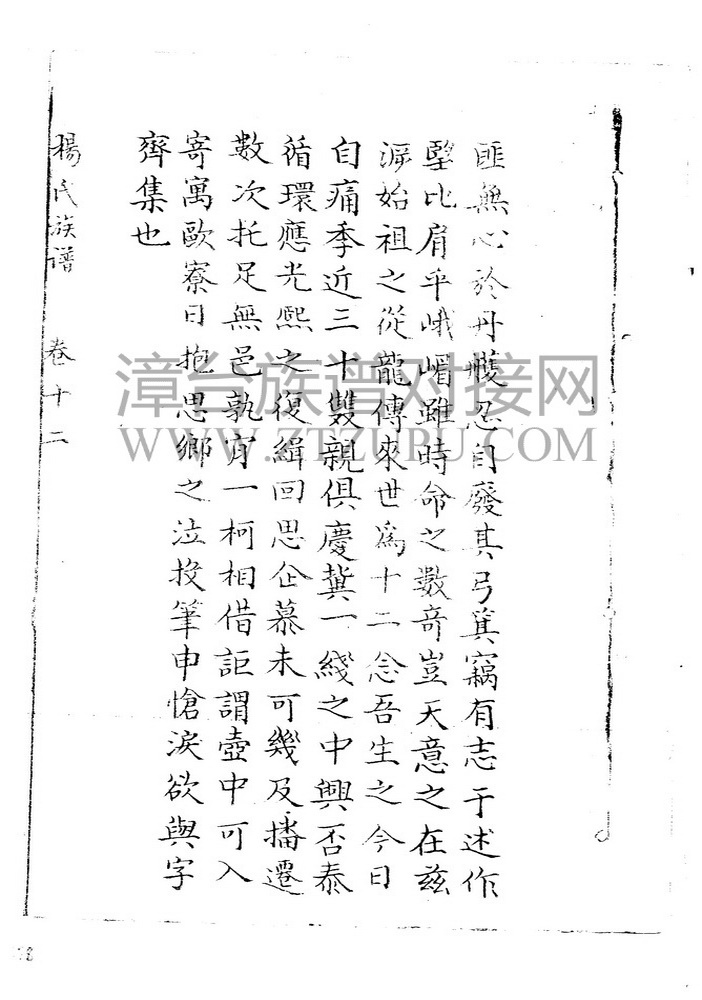 匪無心於丹雘忍自廢其弓箕竊有志于述作
堅比肩乎峨嵋雖時命之數奇豈天意之在茲
溯始祖之從龍傳來世爲十二念吾生之今日
自痛季近三十雙親俱慶冀一綫之中興否泰
循環應光熙之復緝回思企慕未可幾及播遷
數次托足無邑孰宵一柯相借詎謂壺中可入
寄寓歐寮日抱思鄉之泣投筆申愴淚欲與字
齊集也
楊氏族譜 卷十二
漳台族谱对接网
WWW.ZTZUPU.COM